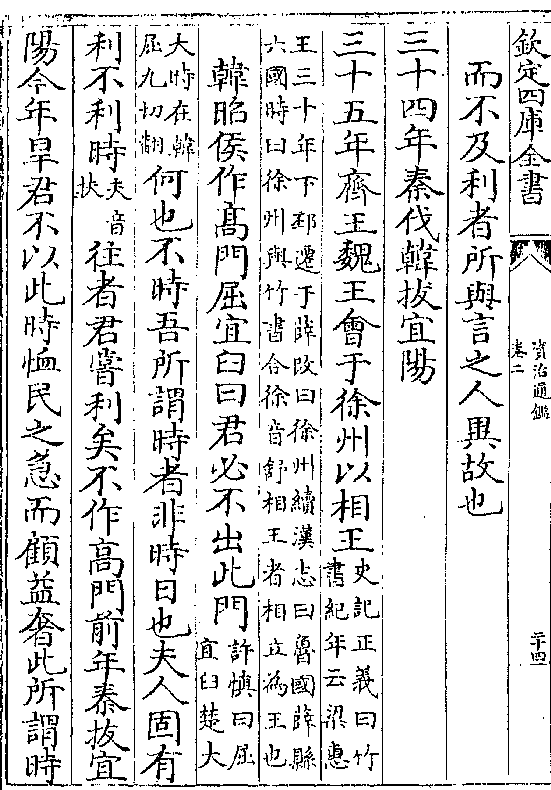 欽定四庫全書
資治通鑑
卷二
二十四
而不及利者所與言之人異故也
三十四年秦伐韓拔宜陽
三十五年齊王魏王會于徐州以相王史記正義曰竹書紀年云梁惠
王三十年下邳遷于薛改曰徐州續漢志曰魯國薛縣
六國時曰徐州與竹書合徐音舒相王者相立為王也
韓昭侯作高門屈宜臼曰君必不出此門許慎曰屈宜臼楚大
大時在韓屈九切翻何也不時吾所謂時者非時日也夫人固有
利不利時夫音扶往者君嘗利矣不作高門前年秦拔宜
陽今年旱君不以此時恤民之急而顧益奢此所謂時